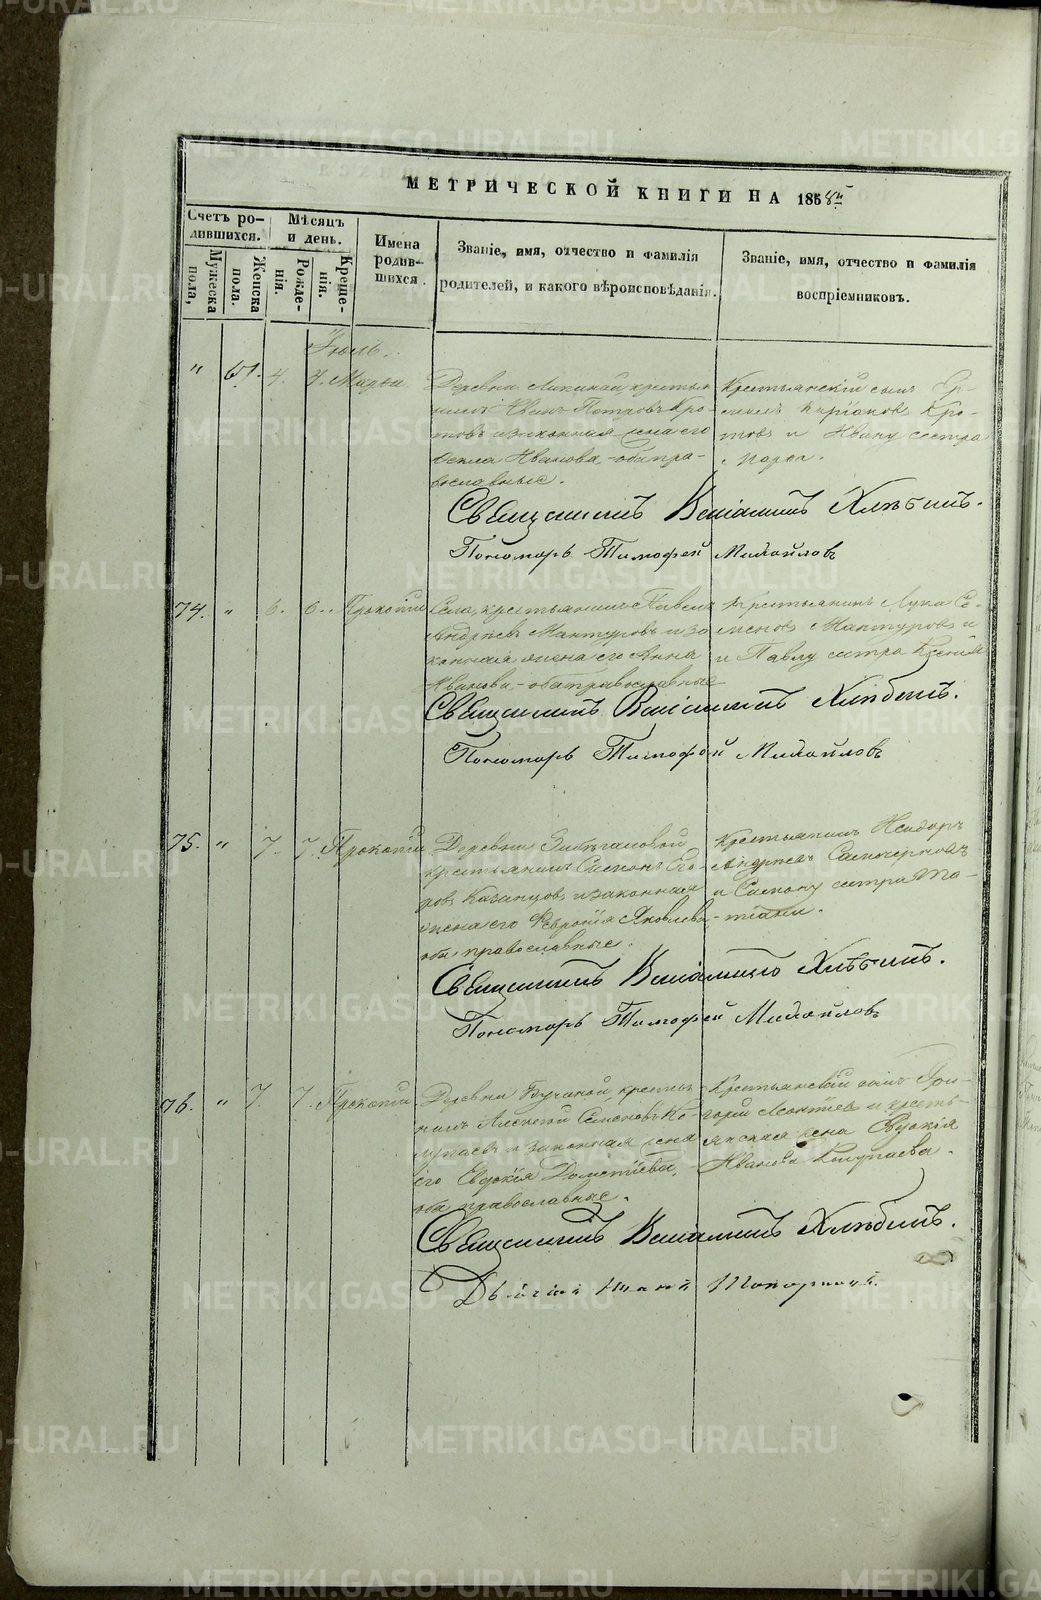 МЕТРИЧЕСКОЙ КНИГИ НА 1858й
Счетъ ро-
дившихся.
Мужеска
пола,
Женска
пола.
Мѣсяцъ
и день.
Рожде-
нія.
Креще-
нія.
Имена
родив-
шихся.
Званіе, имя, отчество и фамилія
родителей, и какого вѣроисповѣданія.
Званіе, имя, отчество и фамилія
воспріемниковъ.
Іюль.
" 61. 4. 4. Марѳа
Деревни крестья
нинъ Иванъ Петровъ Кро-
товъ и законная жена его
Ѳекла Иванова - оба пра-
вославные.
Крестьянскій сынъ
Кро-
товъ и Ивану сестра
Священникъ Веніаминъ Хлѣбинъ.
Пономарь Тимофей Михайловъ
74. " 6. 6. Прокопій
Села, крестьянинъ Павелъ
Андреевъ Мантуровъ и за
конная жена его Анна
Иванова - оба православные
Крестьянинъ Лука Се-
меновъ Мантуровъ и
и Павлу сестра Ксенія
Священникъ Веніаминъ Хлѣбинъ.
Пономарь Тимофей Михайловъ
75. " 7. 7. Прокопій
Деревни
крестьянинъ Симонъ Его-
ровъ Казанцовъ и законная
жена его Феѵронія Яковлева
оба православные.
Крестьянинъ Исидоръ
Андреевъ
и Симону сестра Та-
тіана.
Священникъ Веніаминъ Хлѣбинъ.
Пономарь Тимофей Михайловъ
76. " 7. 7. Прокопій
Деревни крестья-
нинъ Алексѣй Семеновъ Ко-
лупаевъ и законная жена
его Евдокія Дометіева,
оба православные.
Крестьянскій сынъ Гри-
горій Леонтіевъ и кресть-
янская жена Евдокія
Иванова Колупаева.
Священникъ Веніаминъ Хлѣбинъ.
METRIKI.GASO-URAL.RU